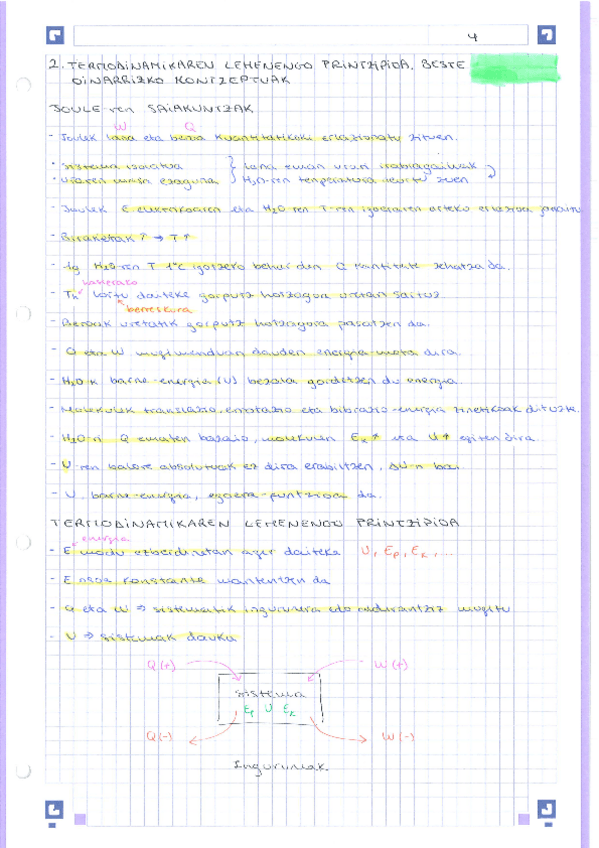 4
2. TERMODINAMIKAREN LEHENENGO PRINTZIPIOA. BESTE
OINARRIZKO KONTZEPTUAK
JOULE-ren SAIAKUNTZAK
W Q
- Joulek lana eta beroa kuantitatiboki erlazionatu zituen.
· Sistema isolatua } lana eman urari irabiagailuak
· Uraren masa ezaguna } H2O-ren tenperatura neurtu zuen
- Joulek E eta H2O-ren T-ren igoeraren arteko erlazioa
- Biraketak ↑ → T ↑
- 1g H2O-ren T 1°C igotzeko behar den Q kantitate zehatza da.
hasierako
- Th lortu daiteke gorputz hotzagoa uretan sartuz
berreskura
- Beroak uretatik gorputz hotzagora pasatzen da.
- Q eta W mugimenduan dauden energia-mota dira.
- H2O-k barne-energia (U) bezala gordetzen du energia.
- Molekulek translazio, errotazio eta bibrazio-energia zinetikoak dituzte.
- H2O-ri Q ematen bazaio, molekulen Ek ↑ eta U ↑ egiten dira.
- U-ren balore absolutuak ez dira erabiltzen, ΔU-n bai.
- U, barne-energia, egoera-funtzioa da.
TERMODINAMIKAREN LEHENENGO PRINTZIPIOA
energia
- E modu ezberdinetan ager daiteke U, Ep, Ek, ...
- E osoa konstante mantentzen da
- Q eta W ⇒ sistematik ingurura edo mugitu
- U ⇒ sistemak dauka
Q(+) W(+)
Sistema
Ep U Ek
Q(-) W(-)
Inguruneak.